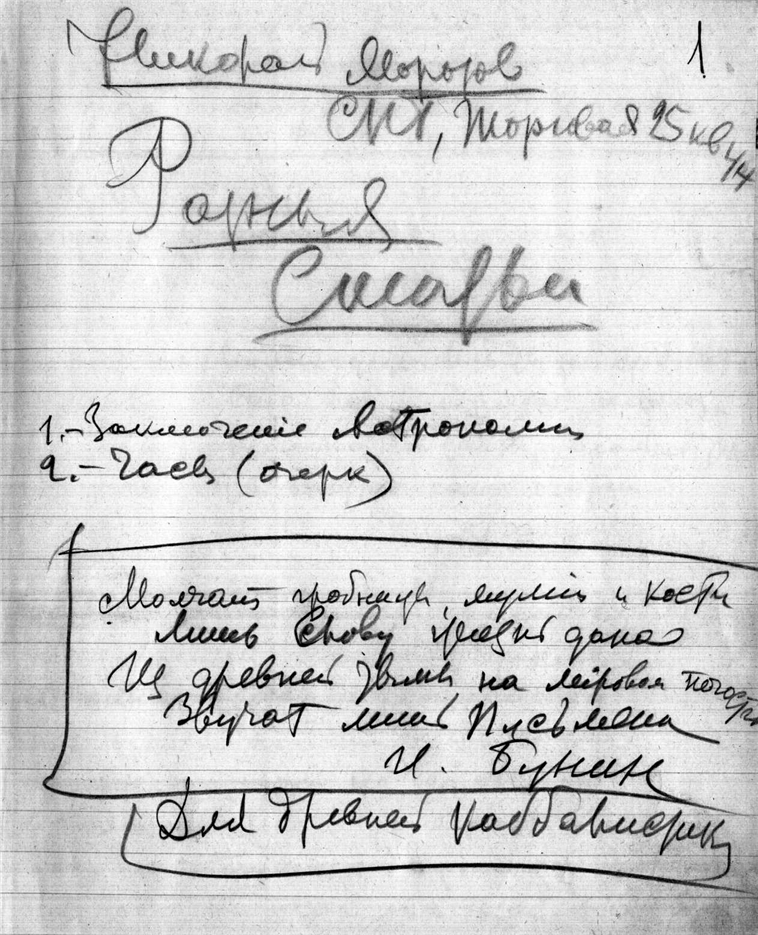 1
Николай Морозов
СПБ, Торговая 25 кв 4
Разныя
Статьи
1.- Заключеніе Астрономіи
2.- Часы (очерк)
Молчат гробницы, муміи и кости
Лишь Слову жизнь дана
Из древней тьмы на міровом погосте
Звучат лишь Письмена
И. Бунин
Для древней каббалистики